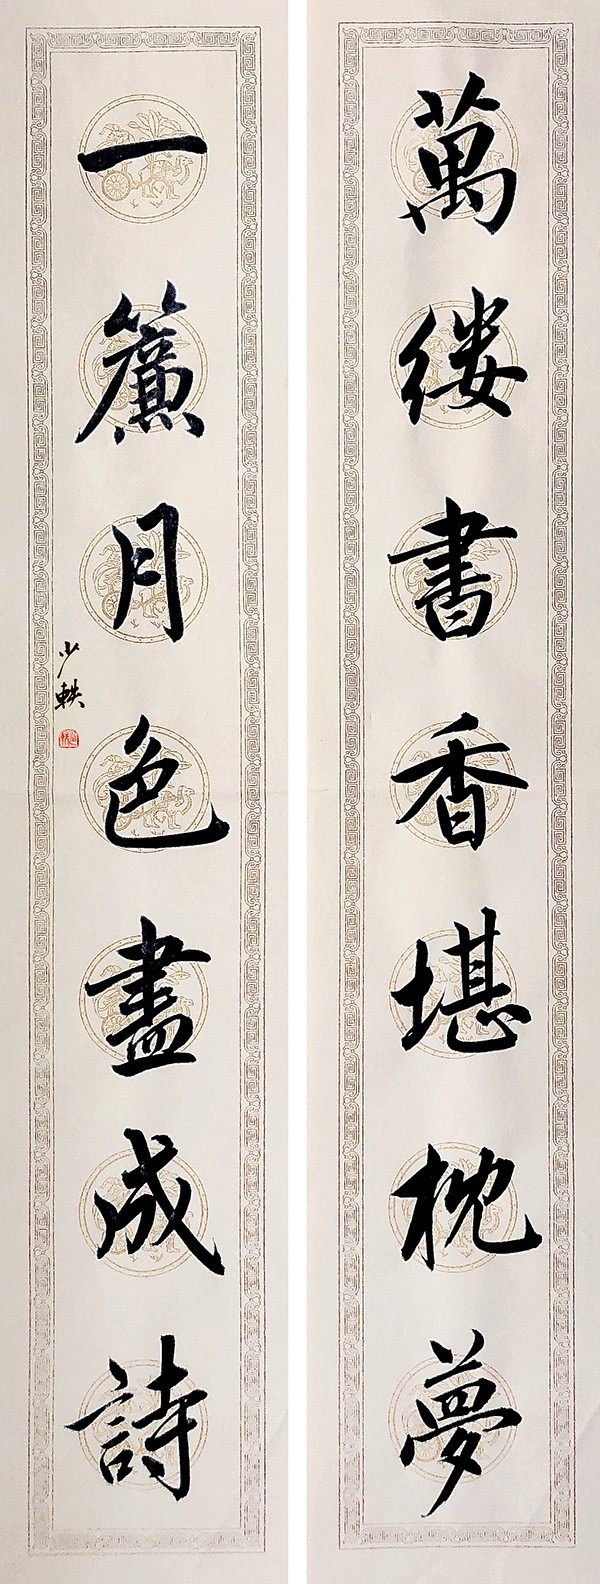 萬缕書香堪枕夢
一簾月色盡成詩
少軼